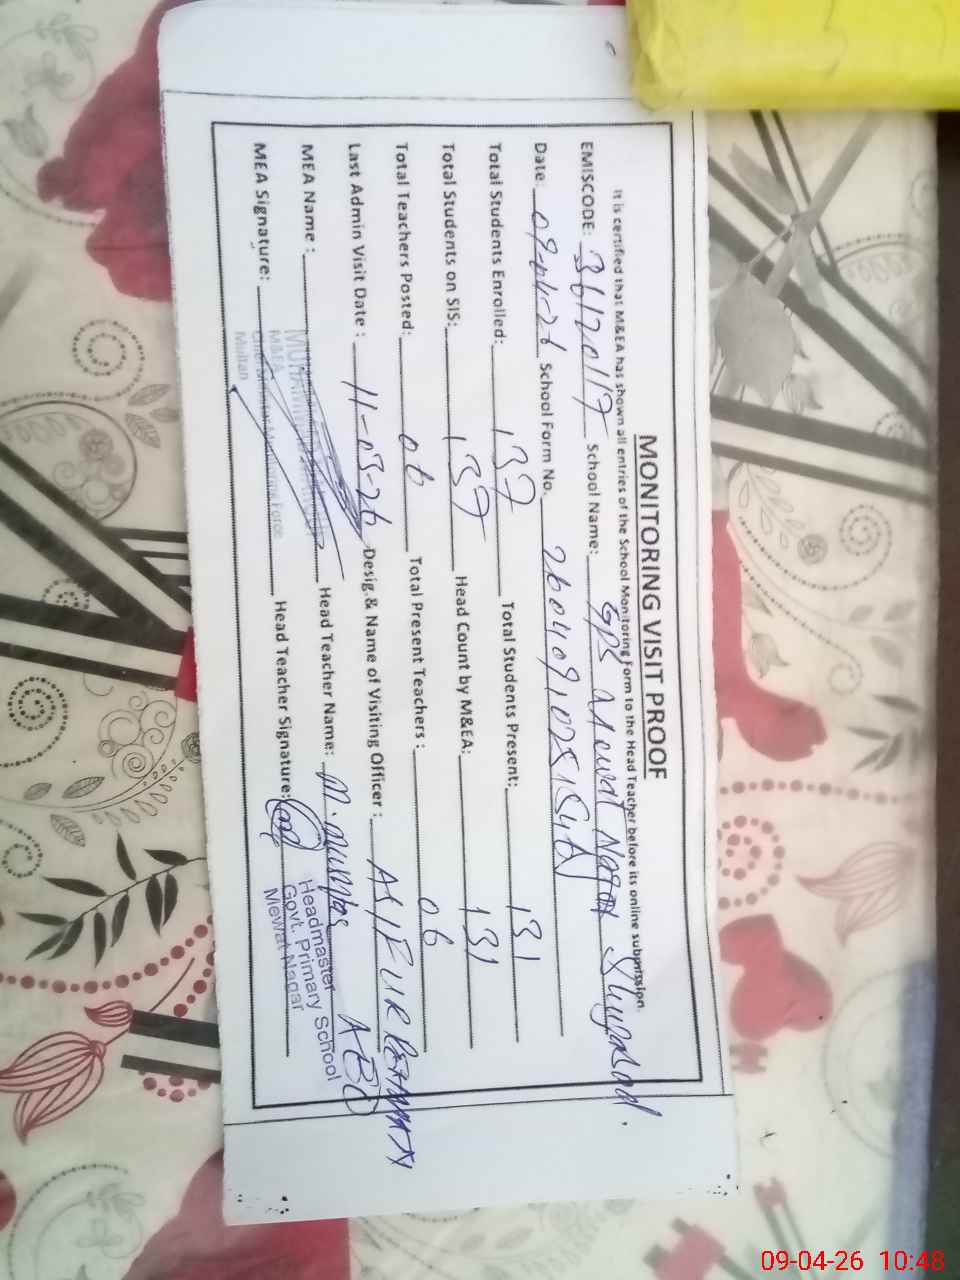 MONITORING VISIT PROOF
It is certified that M&EA has shown all entries of the School Monitoring Form to the Head Teacher before its online submission.
EMISCODE: 36120117 School Name: GPS Mewat Nagar
Date: 09-04-26 School Form No.
Total Students Enrolled: 137 Total Students Present: 131
Total Students on SIS: 137 Head Count by M&EA: 131
Total Teachers Posted: 06 Total Present Teachers : 06
Last Admin Visit Date : 11-03-26 Desig.& Name of Visiting Officer :
MEA Name : Head Teacher Name:
MEA Signature: Head Teacher Signature:
MEA
Multan
Headmaster
Govt. Primary School
Mewat Nagar
09-04-26 10:48